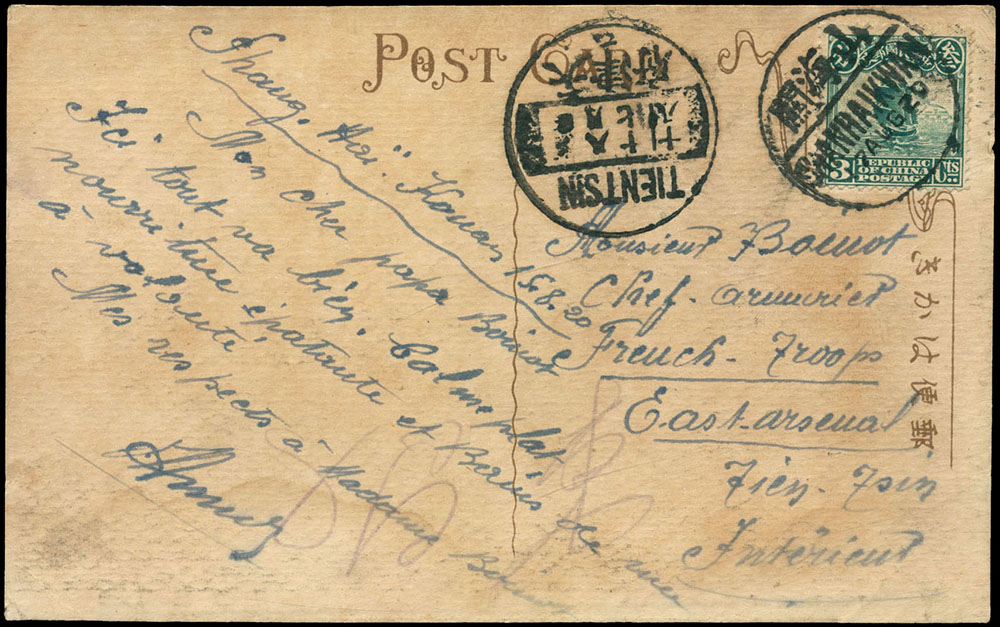 POST CARD
Shang. Haï. Kouan 15.8.20
Mon cher papa Boinot
Ici tout va bien. Calme plat,
nourriture épatante et Bains de mer
à volonté
Mes respects à Madame
TIENTSIN
SHANHAIKWAN
AUG 20
3
REPUBLIC
OF CHINA
POSTAGE
Cts
Monsieur Boinot
Chef-armurier
French-Troops
East-arsenal
Tien-Tsin
Intérieur
きかは便郵